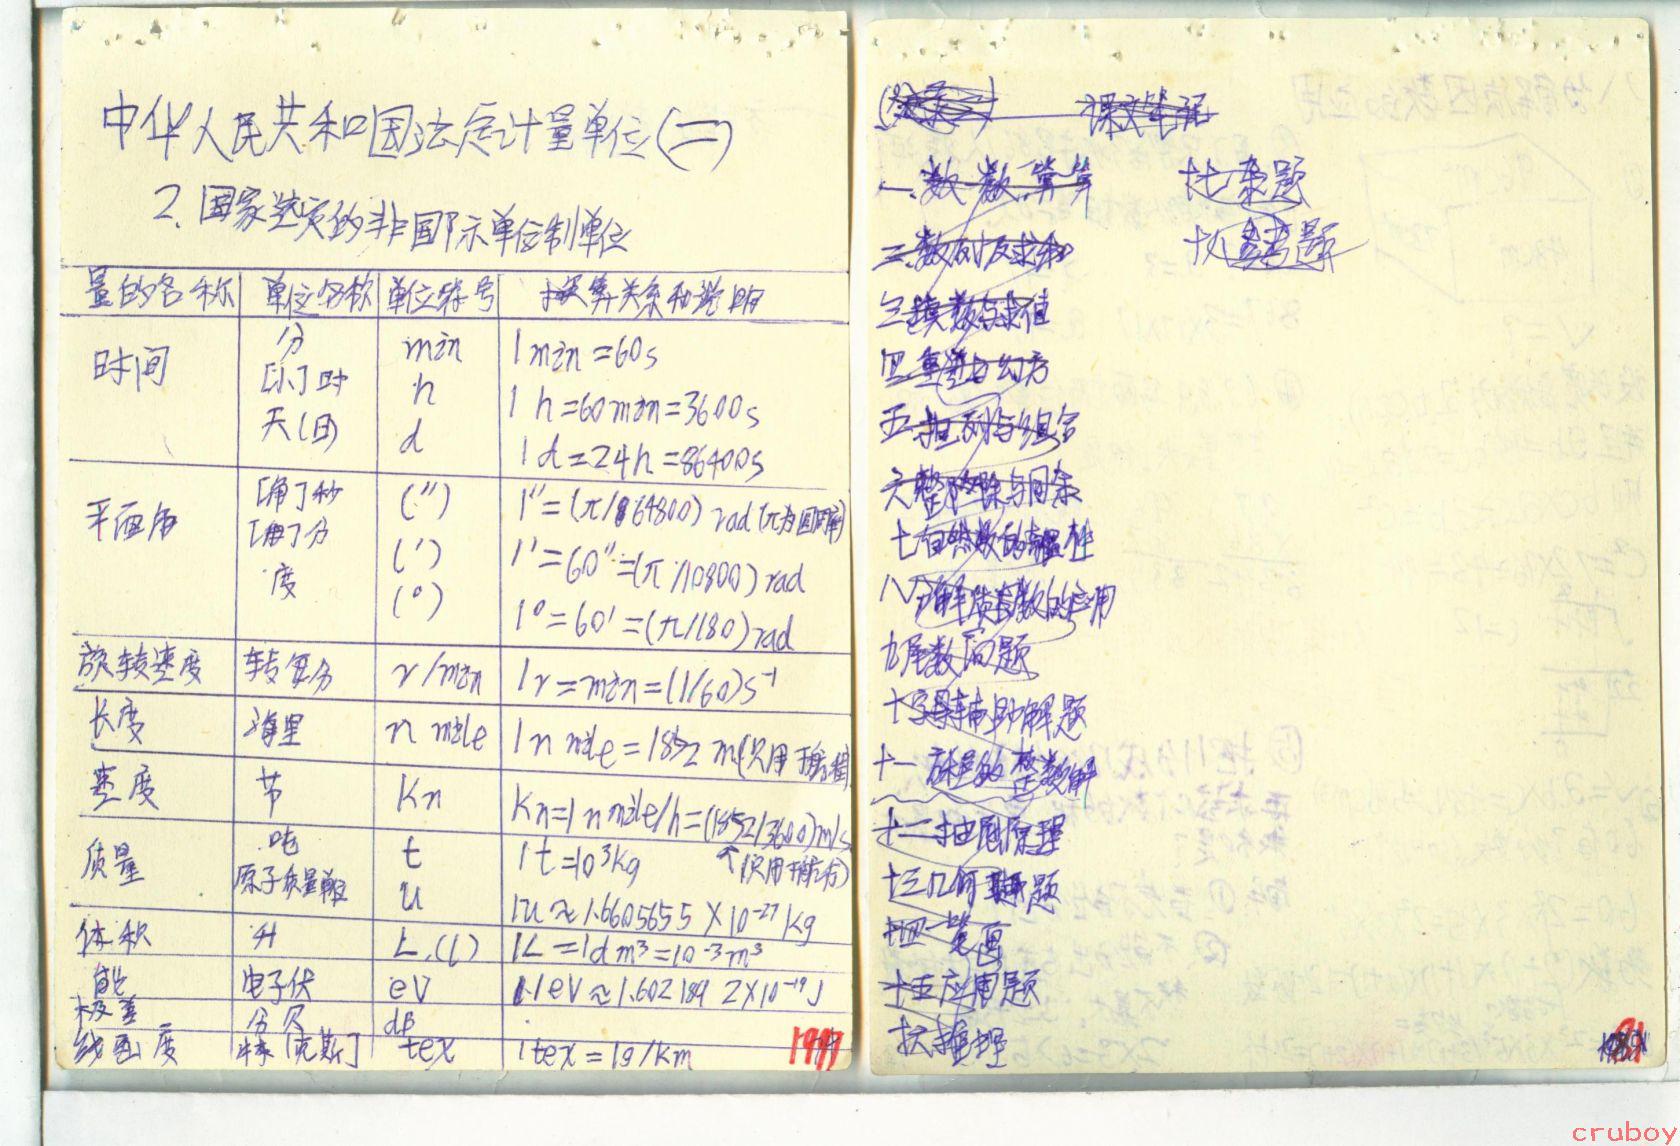 中华人民共和国法定计量单位(二)
2.国家选定的非国际单位制单位
量的名称 单位名称 单位符号 换算关系和说明
时间 分 min 1min=60s
[小]时 h 1h=60min=3600s
天(日) d 1d=24h=86400s
平面角 [角]秒 (″) 1″=(π/864800)rad(π为圆周率)
[角]分 (′) 1′=60″=(π/10800)rad
度 (°) 1°=60′=(π/180)rad
旋转速度 转每分 r/min 1r=min=(1/60)s⁻¹
长度 海里 n mile 1n mile=1852m(只用于航程)
速度 节 Kn Kn=1n mile/h=(1852/3600)m/s
(只用于航行)
质量 吨 t 1t=10³kg
原子质量单位 u 1u≈1.6605655×10⁻²⁷kg
体积 升 L.(l) 1L=1dm³=10⁻³m³
能 电子伏 eV 1eV≈1.6021892×10⁻¹⁹J
极差 分贝 dB
线密度 特[克斯] tex 1tex=1g/km
1997
课文笔记
一、数、数、算
二、数列及求和
三、换数与求值
四、重叠与幻方
五、排列与组合
六、整除与同余
七、自然数的奇偶性
八、分解质因数的应用
九、尾数问题
十、字母辅助解题
十一、方程的整数解
十二、抽屉原理
十三、几何趣题
十四、一笔画
十五、应用题
十六、推理
十七、杂题
十八、思考题
cruboy